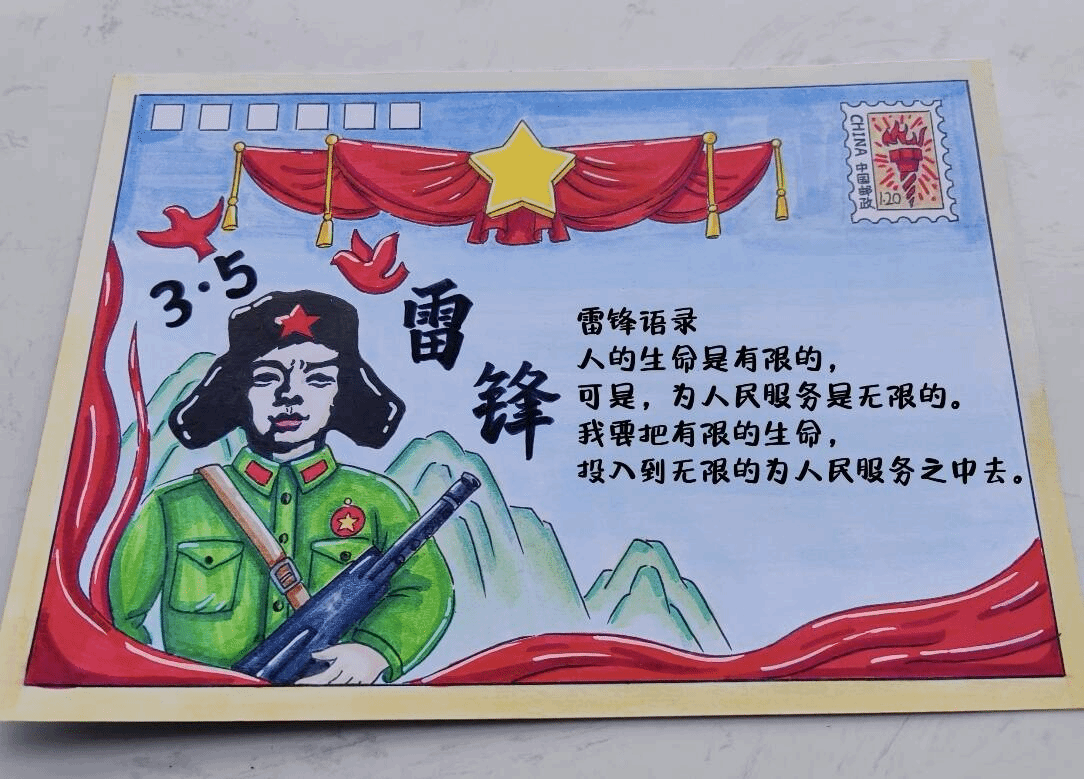 CHINA 中国邮政
1.20
3·5
雷锋
雷锋语录
人的生命是有限的，
可是，为人民服务是无限的。
我要把有限的生命，
投入到无限的为人民服务之中去。